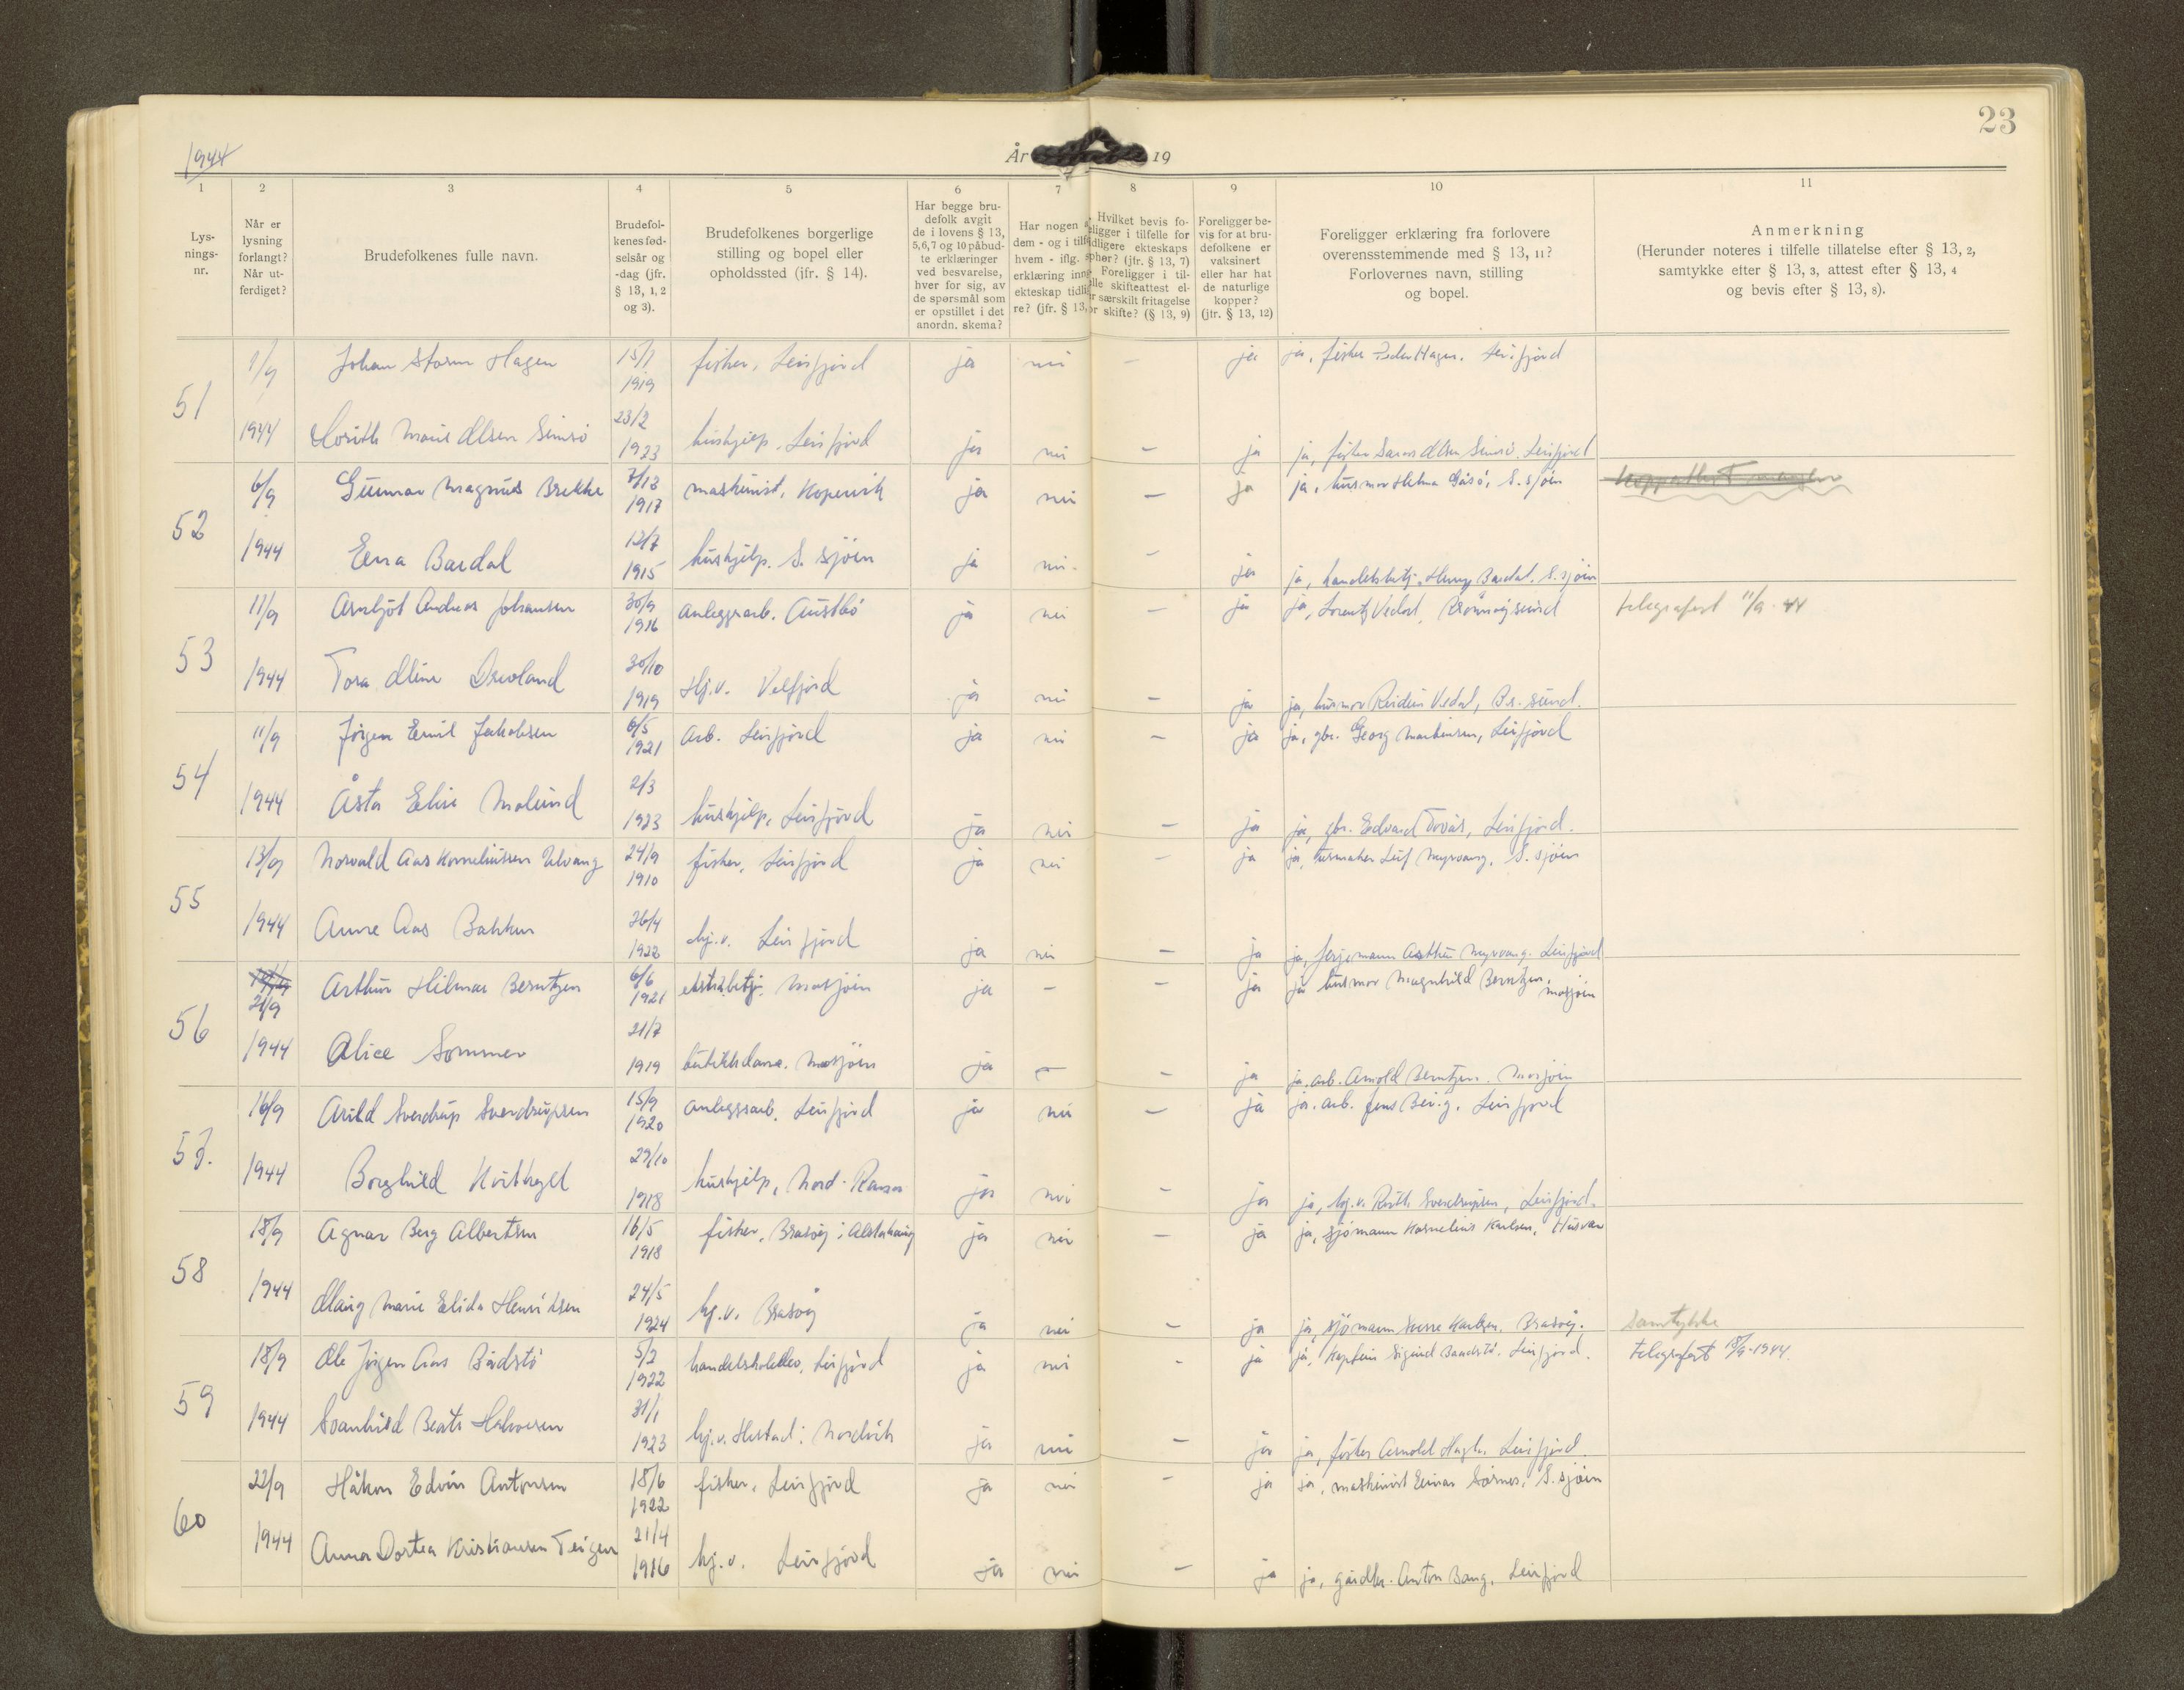 23
1944
År 19
1 2 3 4 5 6 7 8 9 10 11
Lys-
nings-
nr.
Når er
lysning
forlangt?
Når ut-
ferdiget?
Brudefolkenes fulle navn.
Brudefol-
kenes fød-
selsår og
-dag (jfr.
§ 13, 1, 2
og 3).
Brudefolkenes borgerlige
stilling og bopel eller
opholdssted (ifr. § 14).
Har begge bru-
defolk avgit
de i lovens § 13,
5,6,7 og 10 påbud-
te erklæringer
ved besvarelse,
hver for sig, av
de spørsmål som
er opstillet i det
anordn. skema?
Har nogen
dem - og i tilf
hvem - iflg.
erklæring inng
ekteskap tidli
re? (jfr. § 13,
Hvilket bevis fo-
religger i tilfelle for
tidligere ekteskaps
ophør? (jfr. § 13, 7)
Foreligger i til-
felle skifteattest el-
er særskilt fritagelse
or skifte? (§ 13, 9)
Foreligger be-
vis for at bru-
defolkene er
vaksinert
eller har hat
de naturlige
kopper?
(jfr. § 13, 12)
Foreligger erklæring fra forlovere
overensstemmende med § 13, 11?
Forlovernes navn, stilling
og bopel.
Anmerkning
(Herunder noteres i tilfelle tillatelse efter § 13, 2,
samtykke efter § 13, 3, attest efter § 13, 4
og bevis efter § 13, 8).
51
Johan Storm Hagen 15/1 1919 fisker, Leirfjord ja nei - ja ja, fisker Peder Hagen. Leirfjord
1944 Marie Olsen 23/2 1923 hushjelp, Leirfjord ja nei - ja ja, fisker Leirfjord
52
6/9 Gunnar Magnus Brekke 7/12 1917 maskinist, Kopervik ja nei - ja ja, husmor S. sjøen
1944 Erna Bardal 12/7 1915 hushjelp. S. sjøen ja nei - ja ja, handelsbetj. Henry Bardal. S. sjøen
53
11/9 Arnljot Andreas Johansen 30/9 1916 anleggsarb. Austbø ja nei - ja ja, Lorentz Vedal, Brønnøysund telegrafert 11/9-44
1944 Tora Oline Drevland 30/10 1919 Hj.v. Velfjord ja nei - ja ja, husmor Reidun Vedal, Br. sund.
54
11/9 Jørgen Emil Jakobsen 6/5 1921 Arb. Leirfjord ja nei - ja ja, gbr. Georg Martinsen, Leirfjord
1944 Åsta Elise Molund 2/3 1923 hushjelp, Leirfjord ja nei - ja ja, gbr. Edvard Forås, Leirfjord.
55
13/9 Norvald Aas Korneliussen Ulvang 24/9 1910 fisker, Leirfjord ja nei - ja ja, urmaker Leif Myrvang. S. sjøen
1944 Anne Aas Bakken 26/4 1922 hj.v. Leirfjord ja nei - ja ja, ferjemann Arthur Myrvang. Leirfjord
56
21/9 Arthur Hilmar Berntzen 6/6 1921 ekstrabetj. Mosjøen ja - - ja ja husmor Magnhild Berntzen, Mosjøen
1944 Alice Sommer 21/7 1919 butikkdame. Mosjøen ja - - ja ja. arb. Arnold Berntzen. Mosjøen
57.
16/9 Arild Sverdrup Sverdrupsen 15/9 1920 anleggsarb. Leirfjord ja nei - ja ja. arb. Jens Leirfjord
1944 Borghild Kvithyll 29/10 1918 hushjelp, Nord-Rana ja nei - ja ja, hj.v. Ruth Sverdrupsen, Leirfjord.
58
18/9 Agnar Berg Albertsen 16/5 1918 fisker, Brasøy i Alstahaug ja nei - ja ja, sjømann Kornelius Karlsen, Husvær
1944 Olaug Marie Elida Henriksen 24/5 1924 hj.v. Brasøy ja nei - ja ja, sjømann Sverre Karlsen. Brasøy. Samtykke
59
18/9 Ole Jørgen Aas Bådstø 5/2 1922 handelsskoleelev, Leirfjord ja nei - ja ja, kaptein Sigurd Baadstø. Leirfjord. telegrafert 18/9-1944.
1944 Svanhild Beate Halvorsen 31/1 1923 hj.v. Hestad i Nordvik ja nei - ja ja, fisker Arnold Leirfjord.
60
22/9 Håkon Edvin Antonsen 18/6 1922 fisker, Leirfjord ja nei - ja ja, maskinist Einar S. sjøen
1944 Anna Dortea Kristiansen Teigen 21/4 1916 hj.v. Leirfjord ja nei - ja ja, gårdbr. Anton Bang, Leirfjord